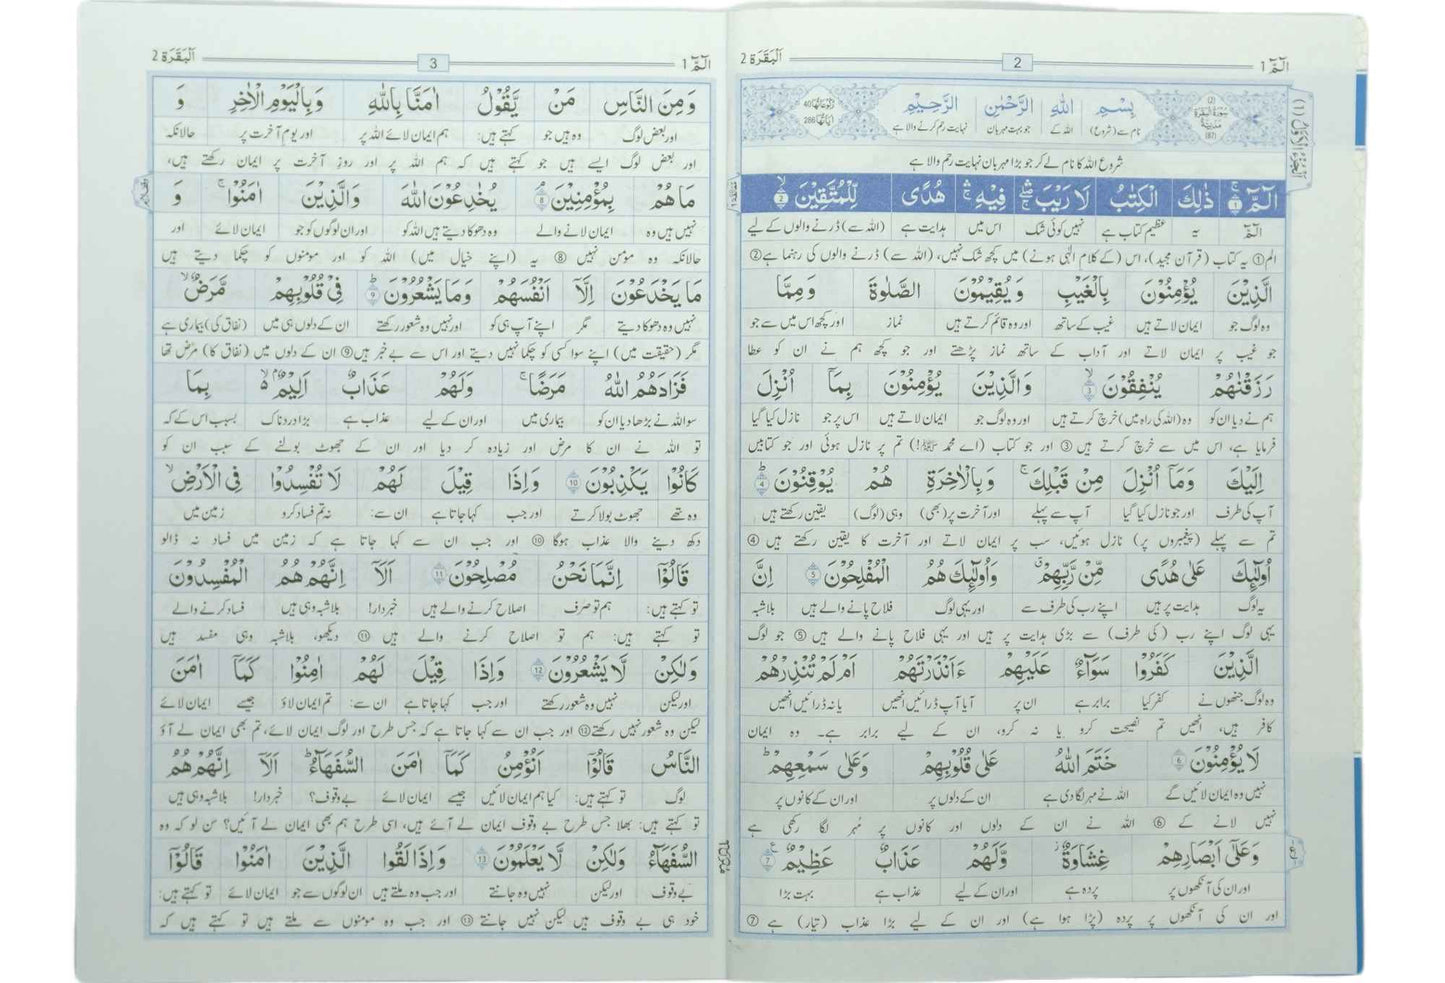 الٓمّٓ 1 2 اَلْبَقَرَة 2
(2) سُوْرَةُ الْبَقَرَةِ مَدَنِيَّةٌ (87) بِسْمِ اللّٰهِ الرَّحْمٰنِ الرَّحِيْمِ رُكُوْعَاتُهَا 40 اٰيَاتُهَا 286
نام سے (شروع) اللہ کے جو بہت مہربان نہایت رحم کرنے والا ہے
شروع اللہ کا نام لے کر جو بڑا مہربان نہایت رحم والا ہے
الٓمّٓ ۚ 1 ذٰلِكَ الْكِتٰبُ لَا رَيْبَ ۛۖ فِيْهِ ۛۚ هُدًى لِّلْمُتَّقِيْنَ ۙ 2
الٓمّٓ یہ عظیم کتاب ہے نہیں کوئی شک اس میں ہدایت ہے (اللہ سے) ڈرنے والوں کے لیے
الم① یہ کتاب (قرآن مجید)، اس (کے کلام الٰہی ہونے) میں کچھ شک نہیں، (اللہ سے) ڈرنے والوں کی رہنما ہے②
الَّذِيْنَ يُؤْمِنُوْنَ بِالْغَيْبِ وَ يُقِيْمُوْنَ الصَّلٰوةَ وَ مِمَّا
وہ لوگ جو ایمان لاتے ہیں غیب کے ساتھ اور وہ قائم کرتے ہیں نماز اور کچھ اس میں سے جو
جو غیب پر ایمان لاتے اور آداب کے ساتھ نماز پڑھتے اور جو کچھ ہم نے ان کو عطا
رَزَقْنٰهُمْ يُنْفِقُوْنَ ۙ 3 وَالَّذِيْنَ يُؤْمِنُوْنَ بِمَآ اُنْزِلَ
ہم نے دیا ان کو وہ (اللہ کی راہ میں) خرچ کرتے ہیں اور وہ لوگ جو ایمان لاتے ہیں اس پر جو نازل کیا گیا
فرمایا ہے، اس میں سے خرچ کرتے ہیں③ اور جو کتاب (اے محمد ﷺ!) تم پر نازل ہوئی اور جو کتابیں
اِلَيْكَ وَمَآ اُنْزِلَ مِنْ قَبْلِكَ ۚ وَ بِالْاٰخِرَةِ هُمْ يُوْقِنُوْنَ ؕ 4
آپ کی طرف اور جو نازل کیا گیا آپ سے پہلے اور آخرت پر (بھی) وہی (لوگ) یقین رکھتے ہیں
تم سے پہلے (پیغمبروں پر) نازل ہوئیں، سب پر ایمان لاتے اور آخرت کا یقین رکھتے ہیں④
اُولٰٓئِكَ عَلٰى هُدًى مِّنْ رَّبِّهِمْ ۗ وَاُولٰٓئِكَ هُمُ الْمُفْلِحُوْنَ 5 اِنَّ
یہ لوگ ہدایت پر ہیں اپنے رب کی طرف سے اور یہی لوگ فلاح پانے والے ہیں بلاشبہ
یہی لوگ اپنے رب (کی طرف) سے بڑی ہدایت پر ہیں اور یہی فلاح پانے والے ہیں⑤ جو لوگ
الَّذِيْنَ كَفَرُوْا سَوَآءٌ عَلَيْهِمْ ءَاَنْذَرْتَهُمْ اَمْ لَمْ تُنْذِرْهُمْ
وہ لوگ جنھوں نے کفر کیا برابر ہے ان پر آیا آپ ڈرائیں انھیں یا نہ ڈرائیں انھیں
کافر ہیں، انھیں تم نصیحت کرو یا نہ کرو، ان کے لیے برابر ہے۔ وہ ایمان
لَا يُؤْمِنُوْنَ 6 خَتَمَ اللّٰهُ عَلٰى قُلُوْبِهِمْ وَعَلٰى سَمْعِهِمْ ؕ
نہیں وہ ایمان لائیں گے اللہ نے مہر لگا دی ہے ان کے دلوں پر اور ان کے کانوں پر
نہیں لانے کے⑥ اللہ نے ان کے دلوں اور کانوں پر مُہر لگا رکھی ہے
وَعَلٰٓى اَبْصَارِهِمْ غِشَاوَةٌ ۫ وَّلَهُمْ عَذَابٌ عَظِيْمٌ 7
اور ان کی آنکھوں پر پردہ ہے اور ان کے لیے عذاب ہے بہت بڑا
اور ان کی آنکھوں پر پردہ (پڑا ہوا ہے) اور ان کے لیے بڑا عذاب (تیار) ہے⑦
الٓمّٓ 1 3 اَلْبَقَرَة 2
وَ مِنَ النَّاسِ مَنْ يَّقُوْلُ اٰمَنَّا بِاللّٰهِ وَ بِالْيَوْمِ الْاٰخِرِ وَ
اور بعض لوگ وہ ہیں جو کہتے ہیں: ہم ایمان لائے اللہ پر اور یوم آخرت پر حالانکہ
اور بعض لوگ ایسے ہیں جو کہتے ہیں کہ ہم اللہ پر اور روز آخرت پر ایمان رکھتے ہیں،
مَا هُمْ بِمُؤْمِنِيْنَ 8 يُخٰدِعُوْنَ اللّٰهَ وَالَّذِيْنَ اٰمَنُوْا ۚ وَ
نہیں ہیں وہ ایمان لانے والے وہ دھوکا دیتے ہیں اللہ کو اور ان لوگوں کو جو ایمان لائے اور
حالانکہ وہ مومن نہیں⑧ یہ (اپنے خیال میں) اللہ کو اور مومنوں کو چکما دیتے ہیں
مَا يَخْدَعُوْنَ اِلَّآ اَنْفُسَهُمْ وَمَا يَشْعُرُوْنَ ؕ 9 فِيْ قُلُوْبِهِمْ مَّرَضٌ ۙ
نہیں وہ دھوکا دیتے مگر اپنے آپ ہی کو اور نہیں وہ شعور رکھتے ان کے دلوں ہی میں (نفاق کی) بیماری ہے
مگر (حقیقت میں) اپنے سوا کسی کو چکما نہیں دیتے اور اس سے بے خبر ہیں⑨ ان کے دلوں میں (نفاق کا) مرض تھا
فَزَادَهُمُ اللّٰهُ مَرَضًا ۚ وَلَهُمْ عَذَابٌ اَلِيْمٌ ۢۙ بِمَا
سو اللہ نے بڑھا دیا ان کو بیماری میں اور ان کے لیے عذاب ہے بڑا دردناک بسبب اس کے کہ
تو اللہ نے ان کا مرض اور زیادہ کر دیا اور ان کے جھوٹ بولنے کے سبب ان کو
كَانُوْا يَكْذِبُوْنَ 10 وَ اِذَا قِيْلَ لَهُمْ لَا تُفْسِدُوْا فِي الْاَرْضِ ۙ
وہ تھے جھوٹ بولا کرتے اور جب کہا جاتا ہے ان سے: نہ تم فساد کرو زمین میں
دکھ دینے والا عذاب ہوگا⑩ اور جب ان سے کہا جاتا ہے کہ زمین میں فساد نہ ڈالو
قَالُوْٓا اِنَّمَا نَحْنُ مُصْلِحُوْنَ 11 اَلَآ اِنَّهُمْ هُمُ الْمُفْسِدُوْنَ
تو کہتے ہیں: ہم تو صرف اصلاح کرنے والے ہیں خبردار! بلاشبہ وہی ہیں فساد کرنے والے
تو کہتے ہیں: ہم تو اصلاح کرنے والے ہیں⑪ دیکھو، بلاشبہ وہی مفسد ہیں
وَلٰكِنْ لَّا يَشْعُرُوْنَ 12 وَ اِذَا قِيْلَ لَهُمْ اٰمِنُوْا كَمَآ اٰمَنَ
اور لیکن نہیں وہ شعور رکھتے اور جب کہا جاتا ہے ان سے: تم ایمان لاؤ جیسے ایمان لائے
لیکن وہ شعور نہیں رکھتے⑫ اور جب ان سے کہا جاتا ہے کہ جس طرح اور لوگ ایمان لائے، تم بھی ایمان لے آؤ
النَّاسُ قَالُوْٓا اَنُؤْمِنُ كَمَآ اٰمَنَ السُّفَهَآءُ ؕ اَلَآ اِنَّهُمْ هُمُ
لوگ تو کہتے ہیں: کیا ہم ایمان لائیں جیسے ایمان لائے بے وقوف؟ خبردار! بلاشبہ وہی ہیں
تو کہتے ہیں: بھلا جس طرح بے وقوف ایمان لے آئے ہیں، اسی طرح ہم بھی ایمان لے آئیں؟ سن لو کہ وہ
السُّفَهَآءُ وَلٰكِنْ لَّا يَعْلَمُوْنَ 13 وَ اِذَا لَقُوا الَّذِيْنَ اٰمَنُوْا قَالُوْٓا
بے وقوف اور لیکن نہیں وہ جانتے اور جب وہ ملتے ہیں ان لوگوں سے جو ایمان لائے تو کہتے ہیں:
خود ہی بے وقوف ہیں لیکن نہیں جانتے⑬ اور جب وہ مومنوں سے ملتے ہیں تو کہتے ہیں کہ